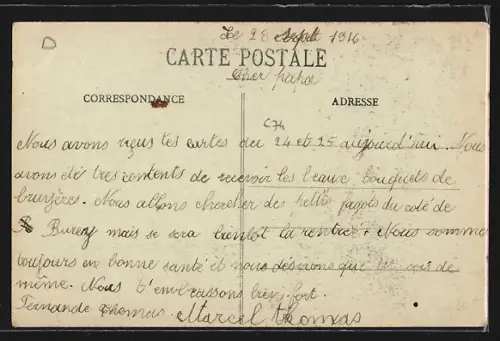 D
Le 28 Sept 1916
CARTE POSTALE
Cher papa
CORRESPONDANCE
ADRESSE
C74
Nous avons reçus tes cartes du 24 et 25 aujourd'hui. Nous
avons été tres contents de recevoir les beaux bouquets de
bruyères. Nous allons chercher des petits fagots du coté de
Burey mais se sera bientôt la rentrée. Nous sommes
toujours en bonne santé et nous désirons que tu sois de
même. Nous t'embrassons bien fort.
Fernande Thomas Marcel Thomas